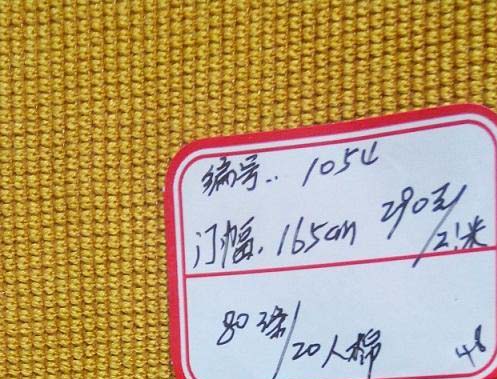 编号.. 1054
门幅. 165cm 290克/平米
80涤/20人棉 48